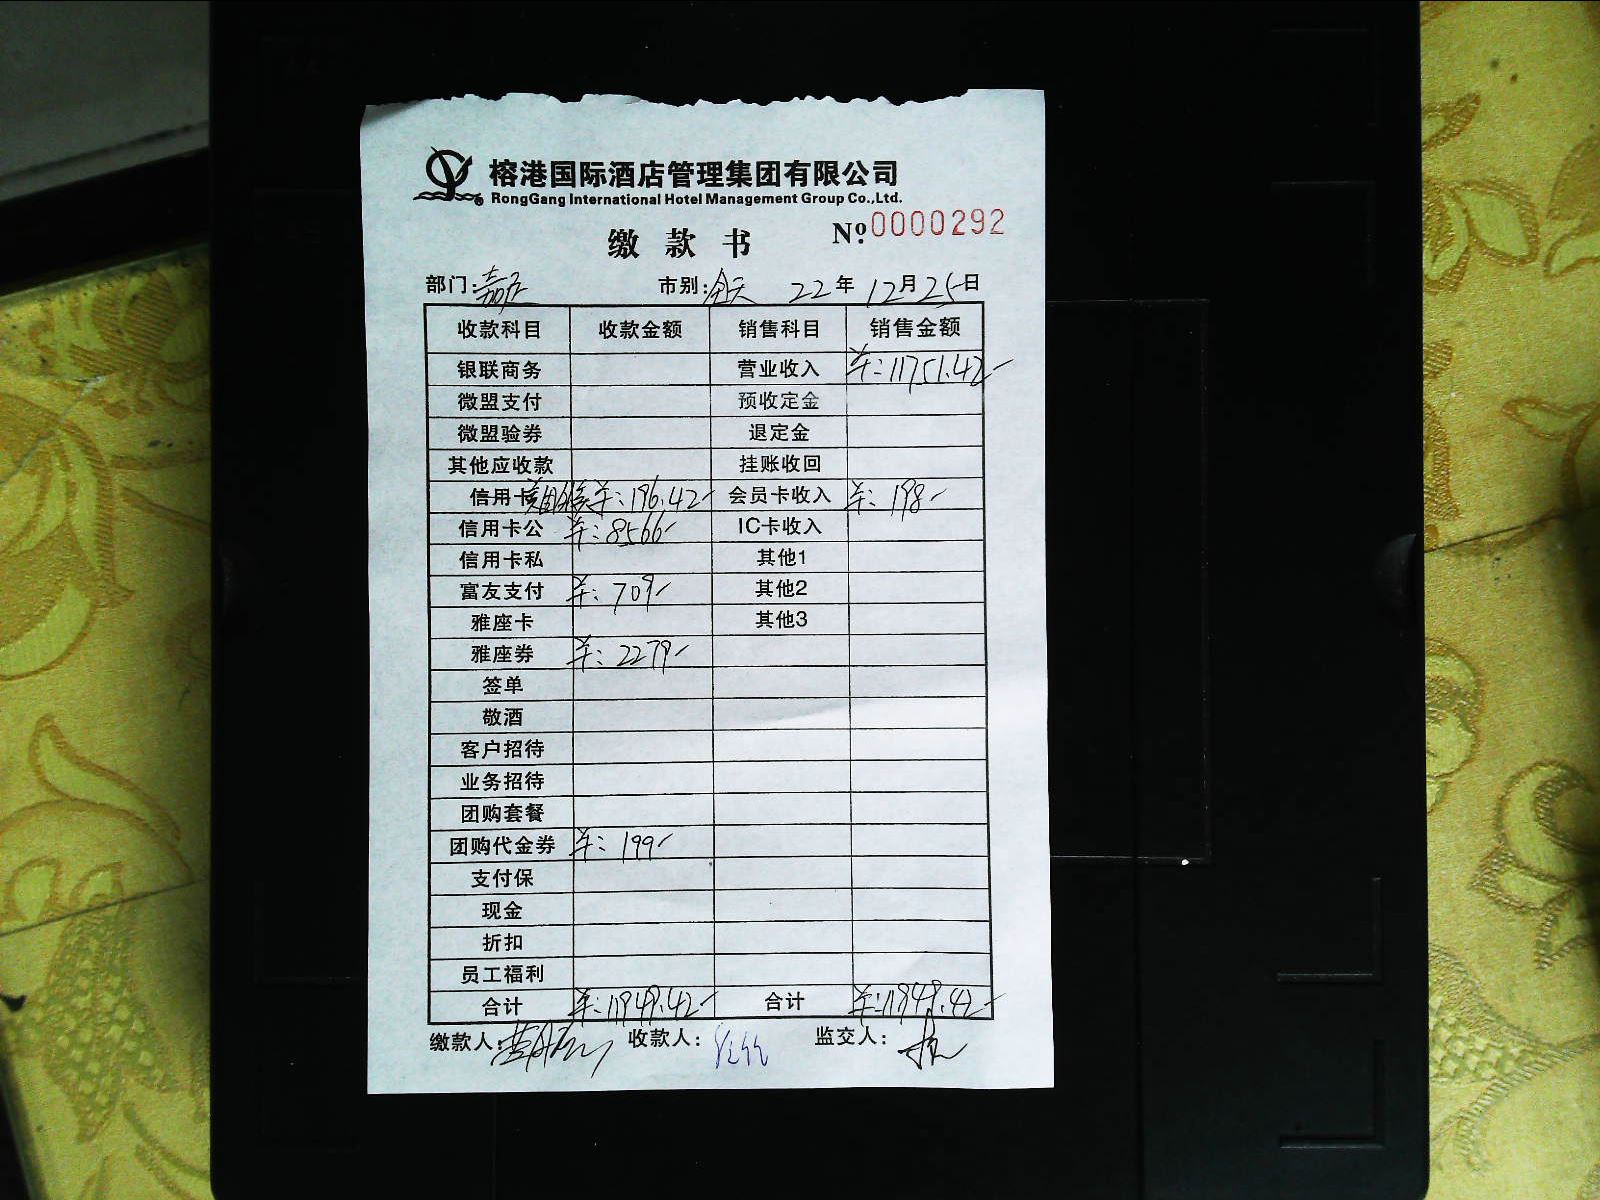 榕港国际酒店管理集团有限公司
RongGang International Hotel Management Group Co.,Ltd.
缴款书 №0000292
部门: 市别:全天 22年12月25日
收款科目 收款金额 销售科目 销售金额
银联商务 营业收入 羊:11751.42-
微盟支付 预收定金
微盟验券 退定金
其他应收款 挂账收回
信用卡 羊:196.42- 会员卡收入 羊:198-
信用卡公 羊:8566- IC卡收入
信用卡私 其他1
富友支付 羊:709- 其他2
雅座卡 其他3
雅座券 羊:2279-
签单
敬酒
客户招待
业务招待
团购套餐
团购代金券 羊:199-
支付保
现金
折扣
员工福利
合计 羊:11949.42- 合计 羊:11949.42-
缴款人: 收款人: 监交人: